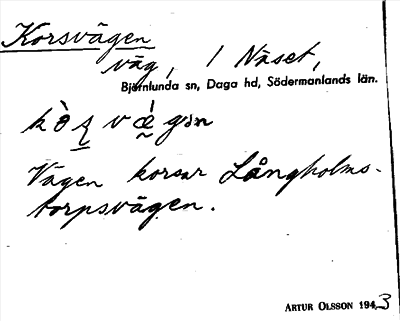 Korsvägen
väg, / Näset,
Björnlunda sn, Daga hd, Södermanlands län.
Vägen korsar Långholms-
torpsvägen.
ARTUR OLSSON 1943